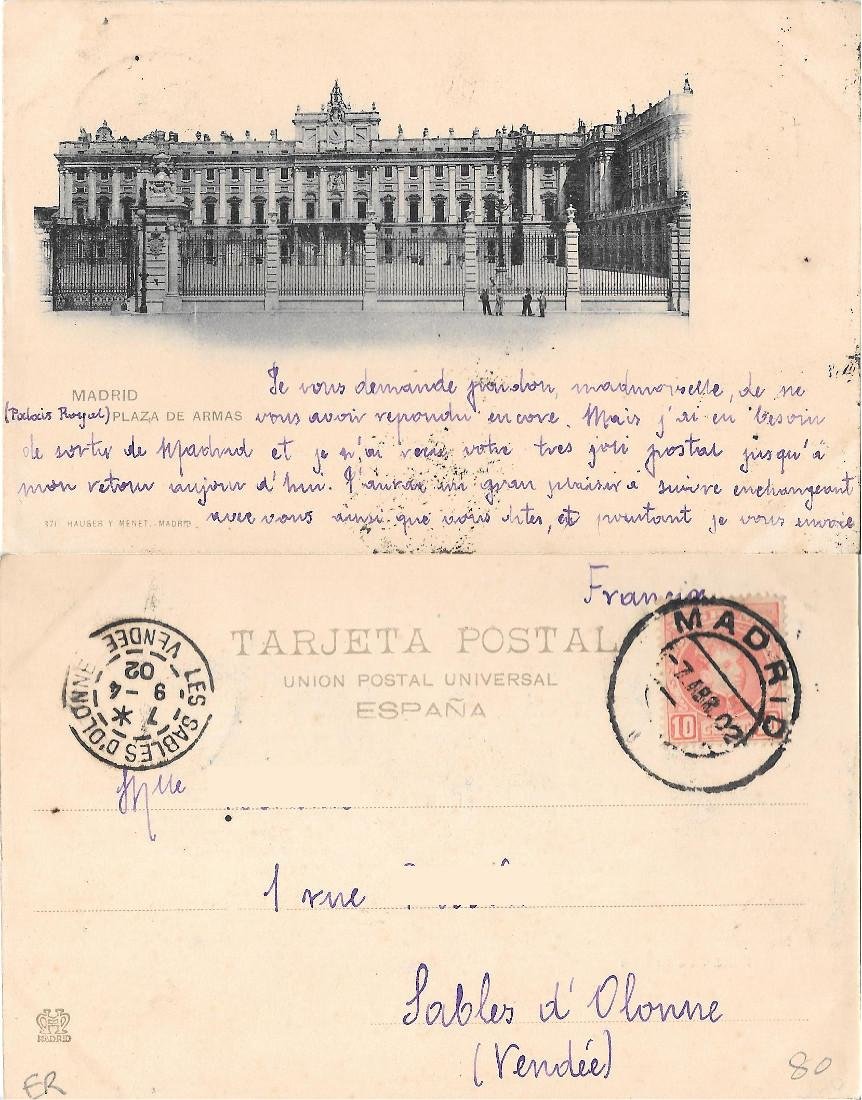 MADRID
(Palais Royal) PLAZA DE ARMAS
Je vous demande pardon, madmoiselle, de ne
vous avoir repondu encore. Mais j'ai eu besoin
de sortir de Madrid et je n'ai reçu votre tres joli postal jusqu'à
mon retour aujour d'hui. J'aurai un gran plaisir à suivre enchangeant
avec vous ainsi que vous dites, et pourtant je vous envoie
371 HAUSER Y MENET.-MADRID
Francia
TARJETA POSTAL
UNION POSTAL UNIVERSAL
ESPAÑA
LES SABLES D'OLONNE
VENDÉE
7
9-4
02
MADRID
7 ABR. 02
10
Mlle
1 rue
Sables d'Olonne
(Vendée)
MADRID
ER
80